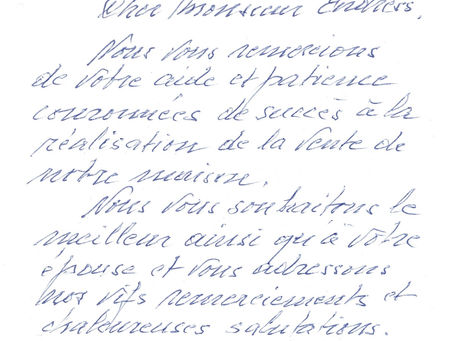 Cher Monsieur Endress,
Nous vous remercions
de votre aide et patience
couronnées de succès à la
réalisation de la vente de
notre maison.
Nous vous souhaitons le
meilleur ainsi qu'à votre
épouse et vous adressons
nos vifs remerciements et
chaleureuses salutations.